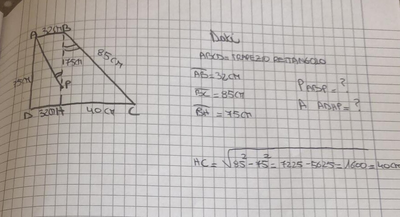 32cm
A B
85cm
75cm
75cm
P
D 32cm H 40cm C
Dati
ABCD = TRAPEZIO RETTANGOLO
AB = 32cm
BC = 85cm
BH = 75cm
P ABP = ?
A ADHP = ?
HC = √85²-75² = 7225-5625 = 1600 = 40cm